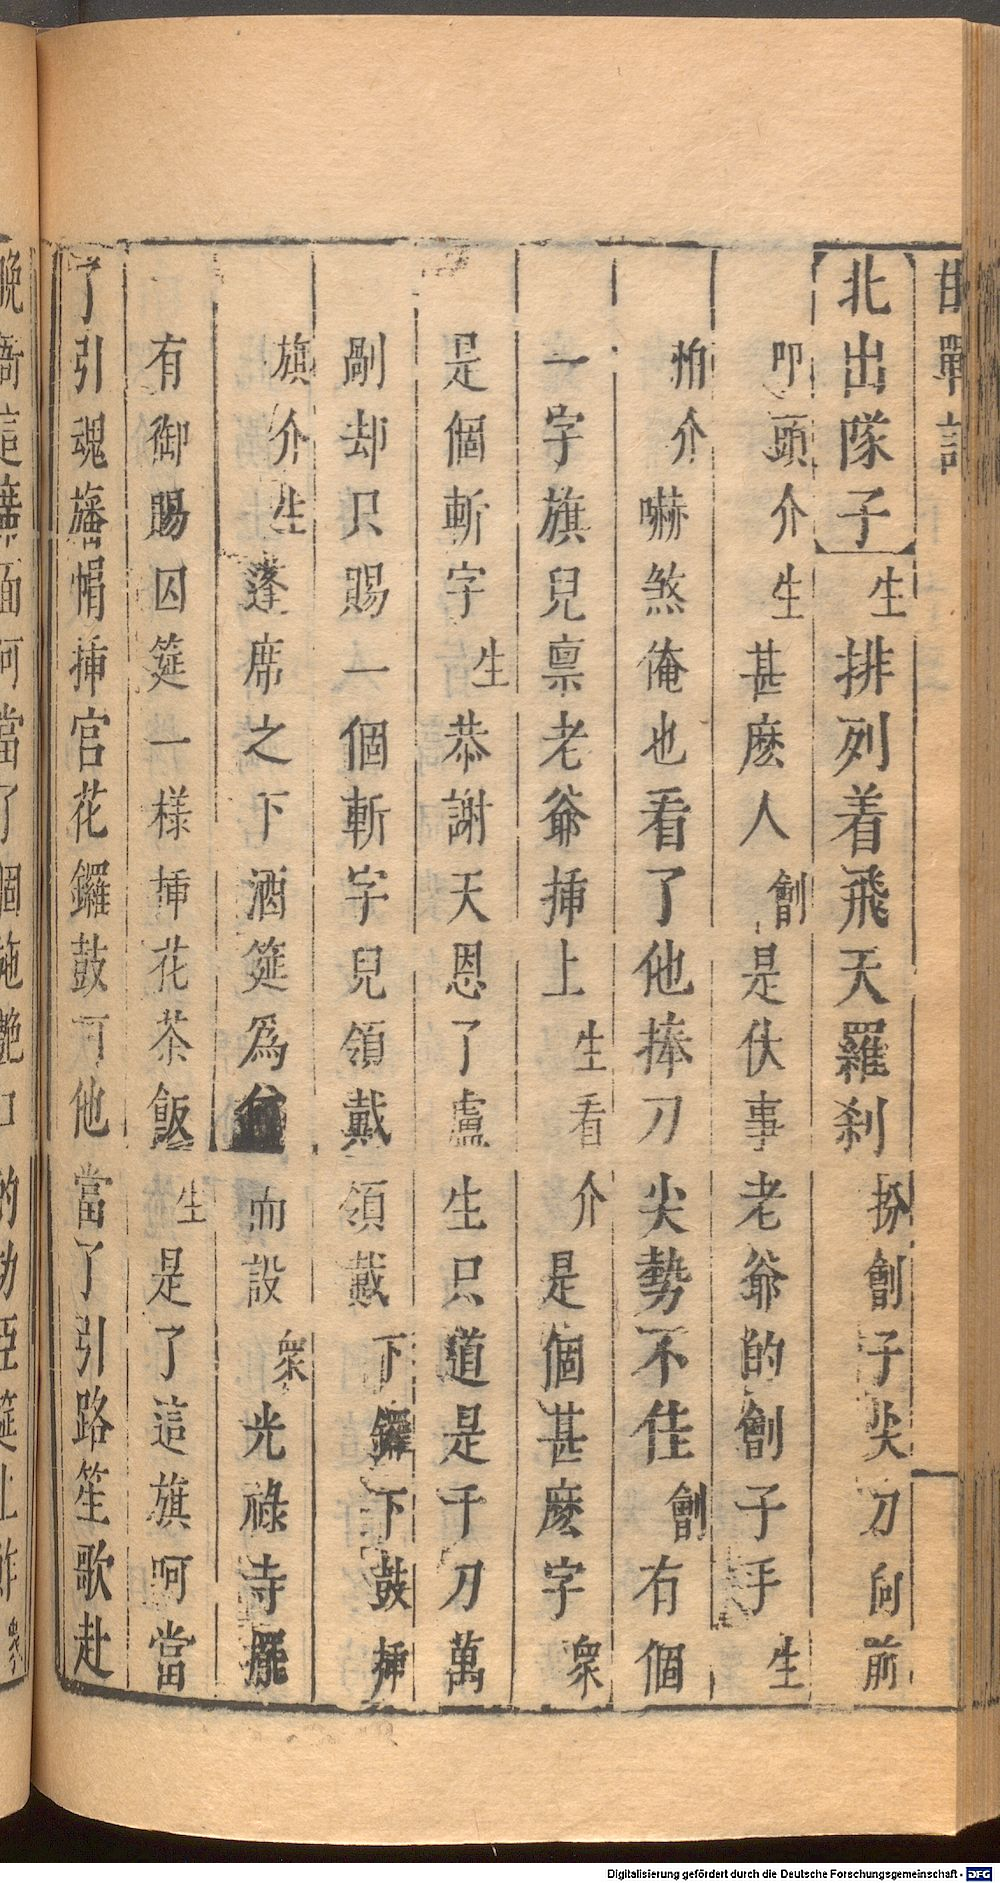 邯鄲記
【北出隊子】生排列着飛天羅刹扮劊子尖刀向前
叩頭介生甚麽人劊是伏事老爺的劊子手生
怕介嚇煞俺也看了他捧刀尖勢不佳劊有個
一字旗兒禀老爺揷上生看介是個甚麽字衆
是個斬字生恭謝天恩了盧生只道是千刀萬
剮却只賜一個斬字兒領戴領戴下鑼下鼓揷
旗介生蓬席之下酒筵爲何而設衆光祿寺擺
有御賜囚筵一樣揷花茶飯生是了這旗呵當
了引魂旛帽揷宮花鑼鼓呵他當了引路笙歌赴
晚衙這席面呵當了個施艷口的功臣筵上鮓衆
Digitalisierung gefördert durch die Deutsche Forschungsgemeinschaft - DFG